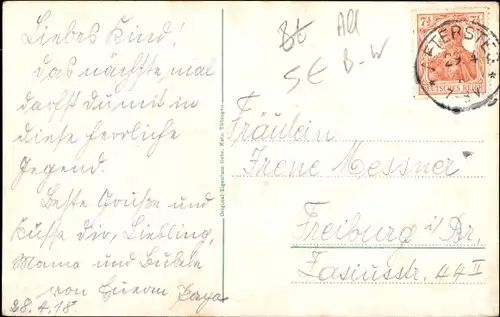 Liebes Kind!
das nächste mal
darfst du mit in
diese herrliche
Gegend.
Beste Grüße und
Küsse dir, Liebling,
Mama und
von Eurem Papa
28.4.18.
Original-Eigentum Gebr. Metz Tübingen
Bt All
SE B-W
7½ 7½
DEUTSCHES REICH
Fräulein
Irene Messner
Freiburg i/Br,
Zasiusstr. 44 II